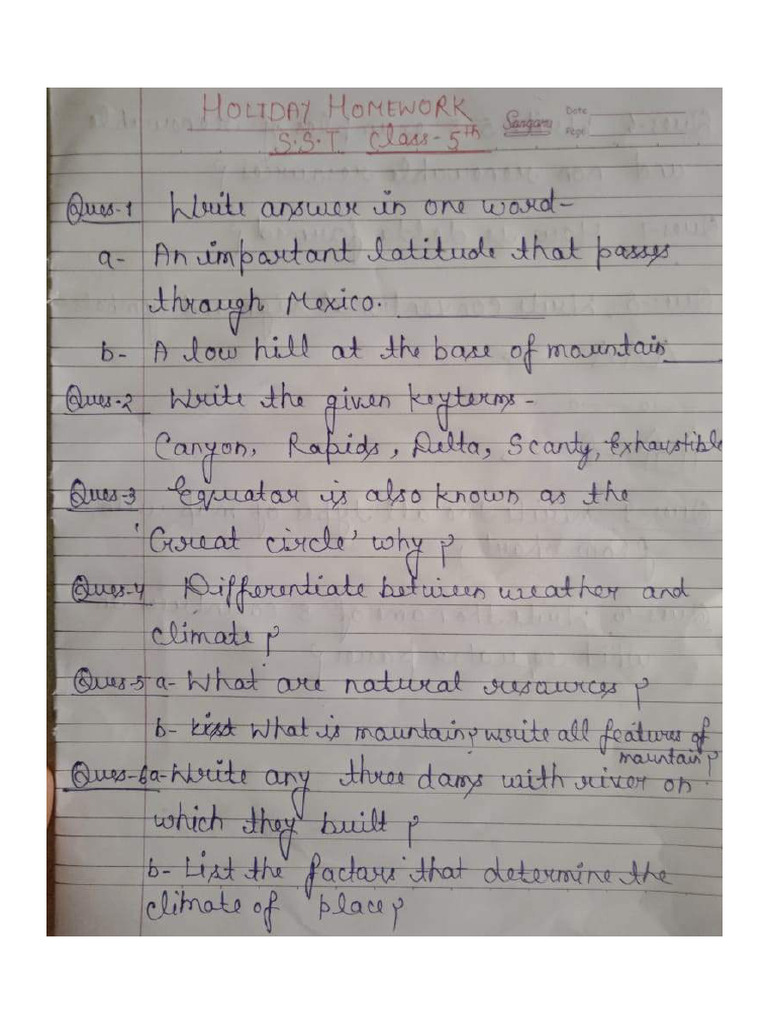 HOLIDAY HOMEWORK
S.S.T Class-5th
Sangam Date
Page
Ques-1 Write answer in one word-
a- An important latitude that passes
through Mexico.
b- A low hill at the base of mountain
Ques-2 Write the given keyterms-
Canyon, Rapids, Delta, Scanty, Exhaustible
Ques-3 Equator is also known as the
'Great circle' why?
Ques-4 Differentiate between weather and
climate?
Ques-5 a- What are natural resources?
b- List What is mountain? write all features of
mountain?
Ques-6 a- Write any three dams with river on
which they built?
b- List the factors that determine the
climate of place?